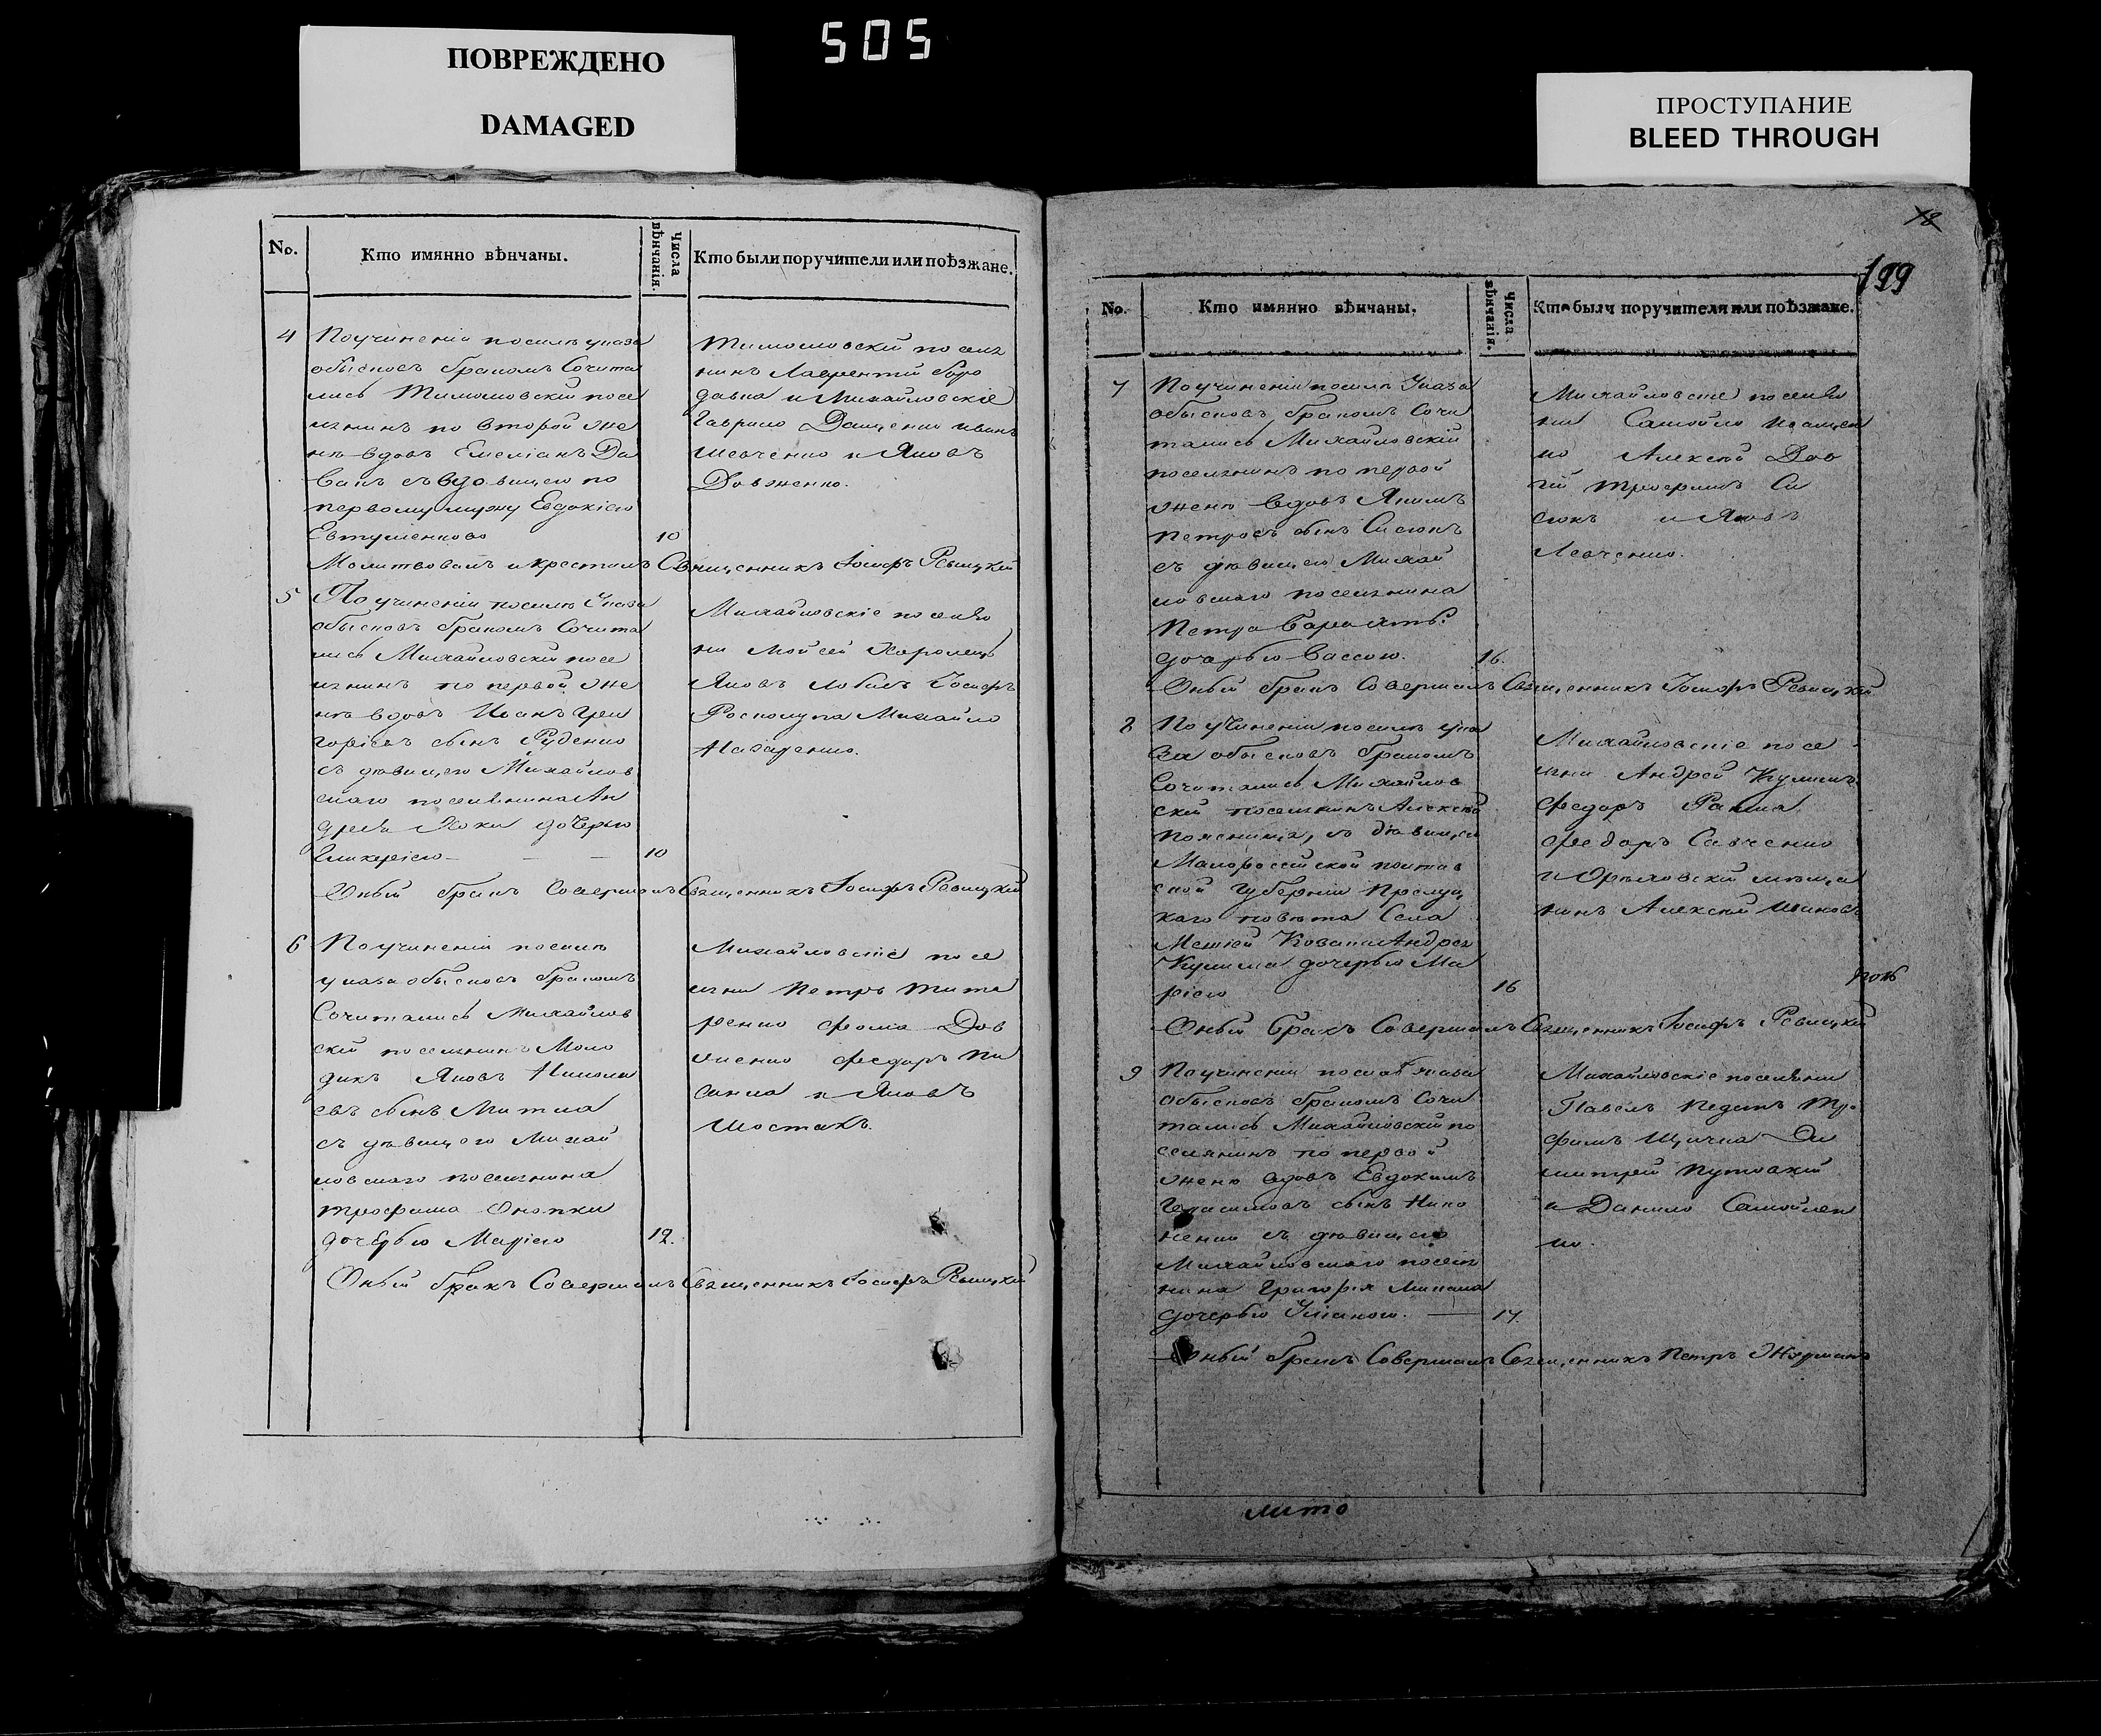 505
ПОВРЕЖДЕНО
DAMAGED
ПРОСТУПАНИЕ
BLEED THROUGH
No.
Кто имянно вѣнчаны.
Числа вѣнчанія.
Кто были поручители или поѣзжане.
4
По учиненіи посилѣ указа
обысковъ бракомъ Сочита
лись Тимошовскій посе
лянинъ по второй же
нѣ вдовъ Емеліанъ
съ вдовицею по
первому мужу Евдокіею
Евтушенково
10
Тимошовскій посел
нинъ Лаврентій
и Михайловскіе
Гаврило Иванъ
Шевченко и Яковъ
Довженко.
Молитвовалъ и крестилъ Священникъ Іосифъ Рѣвицкій
5
По учиненіи посилѣ Указа
обысковъ бракомъ Сочита
лись Михайловскій посе
лянинъ по первой же
нѣ вдовъ Иоанъ Гри
горіевъ сынъ Руденко
съ дѣвицею Михайлов
скаго поселянина Ан
дрея дочерью
Гликеріею
10
Михайловскіе поселя
ни Мойсей Хоролецъ
Яковъ Іосифъ
Михайло
Назаренко.
Оный бракъ Совершалъ Священникъ Іосифъ Рѣвицкій
6
По учиненіи посилѣ
указа обысковъ бракомъ
Сочитались Михайлов
скій поселянинъ Моло
дикъ Яковъ Никола
евъ сынъ Митла
съ дѣвицею Михай
ловскаго поселянина
Трофима Онопки
дочерью Маріею
12.
Михайловскіе посе
ляни Петръ Тита
ренко Фома Дов
женко Федоръ Пи
санка и Яковъ
Шостакъ.
Оный бракъ Совершалъ Священникъ Іосифъ Рѣвицкій
78
199
No.
Кто имянно вѣнчаны.
Числа вѣнчанія.
Кто были поручители или поѣзжане.
7
По учиненіи посилѣ Указа
обысковъ бракомъ Сочи
тались Михайловскій
поселянинъ по первой
женѣ вдовъ Якимъ
Петровъ сынъ Сисюкъ
съ дѣвицею Михай
ловскаго поселянина
Петра
дочерью Вассою.
16.
Михайловскіе поселя
ни Самойло
Алексѣй Дов
гій Трофимъ Си
сюкъ и Яковъ
Левченко.
Оный бракъ Совершалъ Священникъ Іосифъ Рѣвицкій
8
По учиненіи посилѣ ука
за обысковъ бракомъ
Сочитались Михайлов
скій поселянинъ Алексѣй
Поясникъ, съ дѣвицею
Малороссійской Полтав
ской Губерніи Прилуц
каго повѣта Села
Козака Андрея
Кулиша дочерью Ма
ріею
16
Михайловскіе посе
ляни Андрей Кулишъ
Федоръ
Федоръ Савченко
и Орѣховскій мѣща
нинъ Алексѣй
Оный бракъ Совершалъ Священникъ Іосифъ Рѣвицкій
9
По учиненіи посилѣ указа
обысковъ бракомъ Сочи
тались Михайловскій по
селянинъ по первой
женѣ вдовъ Евдокимъ
Герасимовъ сынъ Нико
ненко съ дѣвицею
Михайловскаго поселя
нина Григорія
дочерью Уліаною.
17.
Михайловскіе поселяни
Павелъ Тро
фимъ Ди
митрій
и Данило Самойлен
ко.
Оный бракъ Совершалъ Священникъ Петръ